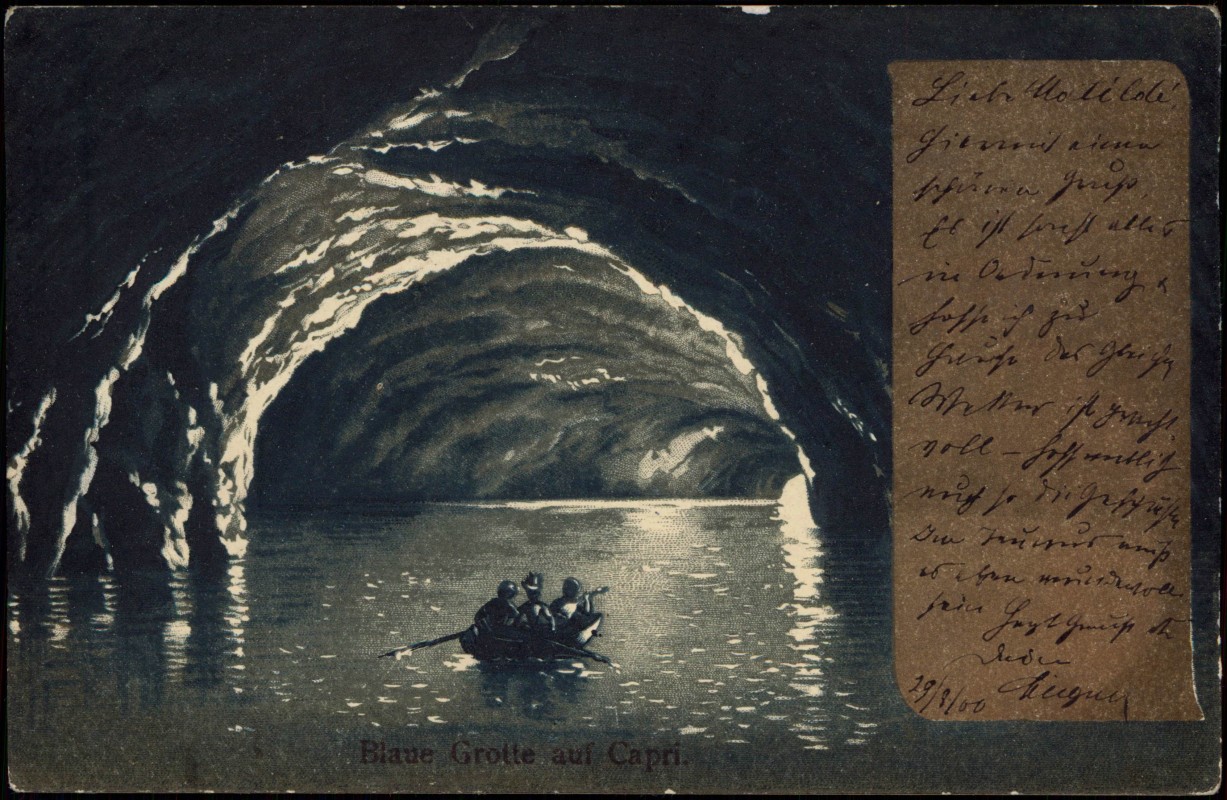 Liebe Mathilde!
Hiermit einen
schönen Gruß.
Es ist sonst alles
in Ordnung &
hoffe ich zu
Hause das Gleiche
Wetter ist pracht
voll – hoffentlich
auch so die Geschäfte
Im Taunus muß
es eben wundervoll
sein Herzl Gruß
Dein
29/8/00
Blaue Grotte auf Capri.